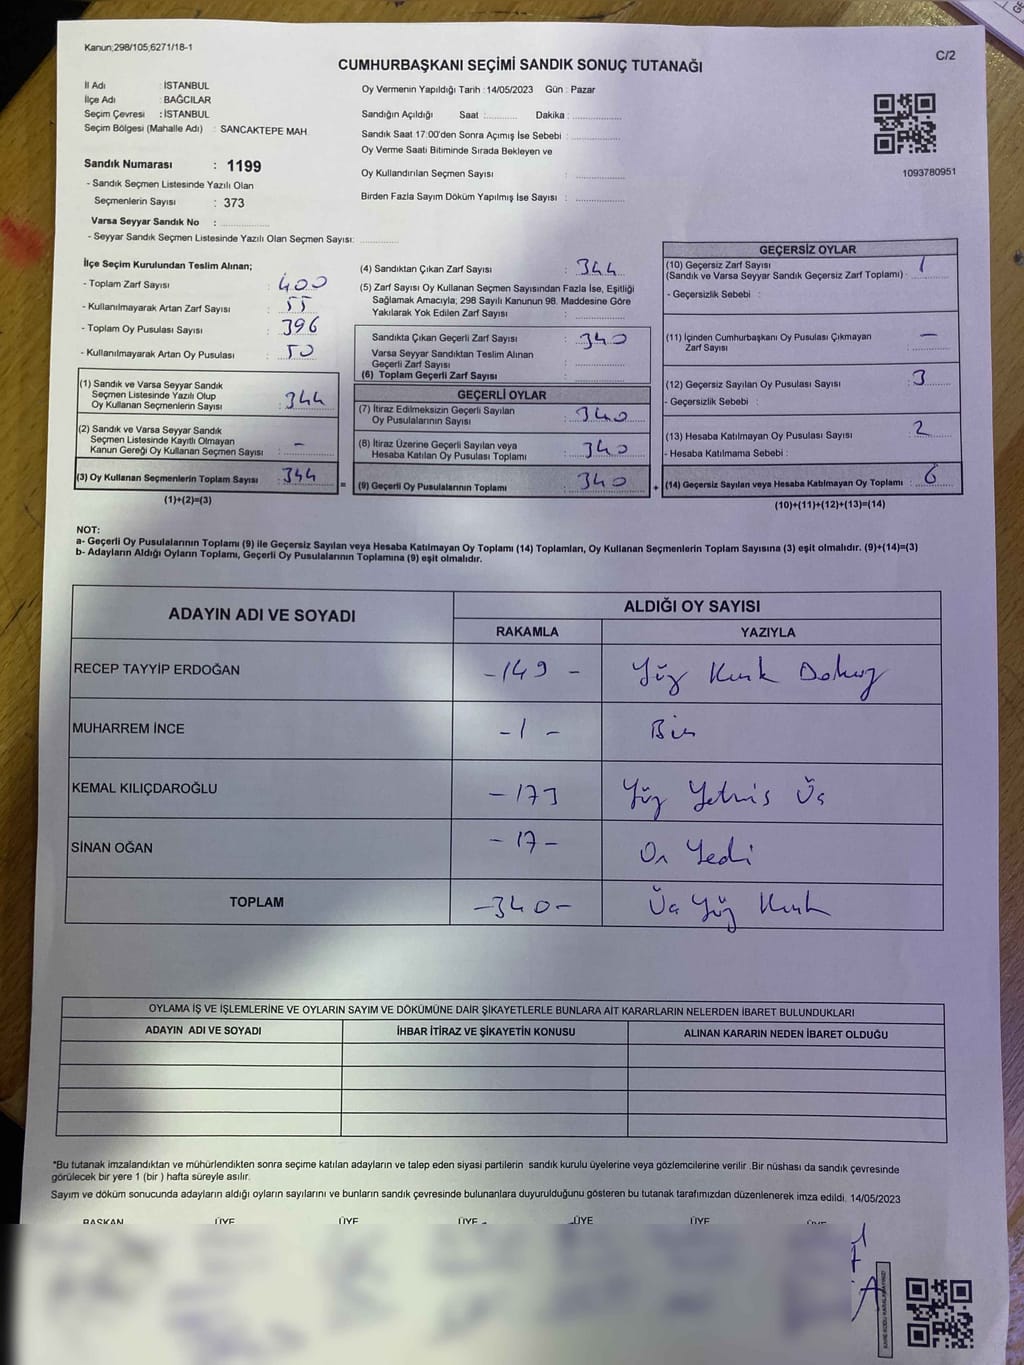 Kanun;298/105,6271/18-1
C/2
CUMHURBAŞKANI SEÇİMİ SANDIK SONUÇ TUTANAĞI
İl Adı : İSTANBUL
İlçe Adı : BAĞCILAR
Seçim Çevresi : İSTANBUL
Seçim Bölgesi (Mahalle Adı) : SANCAKTEPE MAH.
Oy Vermenin Yapıldığı Tarih : 14/05/2023 Gün : Pazar
Sandığın Açıldığı Saat :.......... Dakika : ................
Sandık Saat 17:00'den Sonra Açımış İse Sebebi : ................
Oy Verme Saati Bitiminde Sırada Bekleyen ve
Oy Kullandırılan Seçmen Sayısı : ................
Birden Fazla Sayım Döküm Yapılmış İse Sayısı : ................
1093780951
Sandık Numarası : 1199
- Sandık Seçmen Listesinde Yazılı Olan
Seçmenlerin Sayısı : 373
Varsa Seyyar Sandık No : ................
- Seyyar Sandık Seçmen Listesinde Yazılı Olan Seçmen Sayısı: ............
İlçe Seçim Kurulundan Teslim Alınan;
- Toplam Zarf Sayısı : 400
- Kullanılmayarak Artan Zarf Sayısı : 55
- Toplam Oy Pusulası Sayısı : 396
- Kullanılmayarak Artan Oy Pusulası : 50
(1) Sandık ve Varsa Seyyar Sandık
Seçmen Listesinde Yazılı Olup
Oy Kullanan Seçmenlerin Sayısı : 344
(2) Sandık ve Varsa Seyyar Sandık
Seçmen Listesinde Kayıtlı Olmayan
Kanun Gereği Oy Kullanan Seçmen Sayısı : -
(3) Oy Kullanan Seçmenlerin Toplam Sayısı : 344
(1)+(2)=(3)
(4) Sandıktan Çıkan Zarf Sayısı : 344
(5) Zarf Sayısı Oy Kullanan Seçmen Sayısından Fazla İse, Eşitliği
Sağlamak Amacıyla; 298 Sayılı Kanunun 98. Maddesine Göre
Yakılarak Yok Edilen Zarf Sayısı : ................
Sandıkta Çıkan Geçerli Zarf Sayısı : 340
Varsa Seyyar Sandıktan Teslim Alınan
Geçerli Zarf Sayısı : ................
(6) Toplam Geçerli Zarf Sayısı : ................
GEÇERLİ OYLAR
(7) İtiraz Edilmeksizin Geçerli Sayılan
Oy Pusulalarının Sayısı : 340
(8) İtiraz Üzerine Geçerli Sayılan veya
Hesaba Katılan Oy Pusulası Toplamı : 340
= (9) Geçerli Oy Pusulalarının Toplamı : 340
GEÇERSİZ OYLAR
(10) Geçersiz Zarf Sayısı
(Sandık ve Varsa Seyyar Sandık Geçersiz Zarf Toplamı) : 1
- Geçersizlik Sebebi :
(11) İçinden Cumhurbaşkanı Oy Pusulası Çıkmayan
Zarf Sayısı : -
(12) Geçersiz Sayılan Oy Pusulası Sayısı : 3
- Geçersizlik Sebebi :
(13) Hesaba Katılmayan Oy Pusulası Sayısı : 2
- Hesaba Katılmama Sebebi :
+ (14) Geçersiz Sayılan veya Hesaba Katılmayan Oy Toplamı : 6
(10)+(11)+(12)+(13)=(14)
NOT:
a- Geçerli Oy Pusulalarının Toplamı (9) ile Geçersiz Sayılan veya Hesaba Katılmayan Oy Toplamı (14) Toplamları, Oy Kullanan Seçmenlerin Toplam Sayısına (3) eşit olmalıdır. (9)+(14)=(3)
b- Adayların Aldığı Oyların Toplamı, Geçerli Oy Pusulalarının Toplamına (9) eşit olmalıdır.
ADAYIN ADI VE SOYADI
ALDIĞI OY SAYISI
RAKAMLA YAZIYLA
RECEP TAYYİP ERDOĞAN -149- Yüz Kırk Dokuz
MUHARREM İNCE -1- Bir
KEMAL KILIÇDAROĞLU -173 Yüz Yetmiş Üç
SİNAN OĞAN -17- On Yedi
TOPLAM -340- Üç Yüz Kırk
OYLAMA İŞ VE İŞLEMLERİNE VE OYLARIN SAYIM VE DÖKÜMÜNE DAİR ŞİKAYETLERLE BUNLARA AİT KARARLARIN NELERDEN İBARET BULUNDUKLARI
ADAYIN ADI VE SOYADI İHBAR İTİRAZ VE ŞİKAYETİN KONUSU ALINAN KARARIN NEDEN İBARET OLDUĞU
*Bu tutanak imzalandıktan ve mühürlendikten sonra seçime katılan adayların ve talep eden siyasi partilerin sandık kurulu üyelerine veya gözlemcilerine verilir .Bir nüshası da sandık çevresinde
görülecek bir yere 1 (bir ) hafta süreyle asılır.
Sayım ve döküm sonucunda adayların aldığı oyların sayılarını ve bunların sandık çevresinde bulunanlara duyurulduğunu gösteren bu tutanak tarafımızdan düzenlenerek imza edildi. 14/05/2023
BAŞKAN ÜYE ÜYE ÜYE ÜYE ÜYE ÜYE